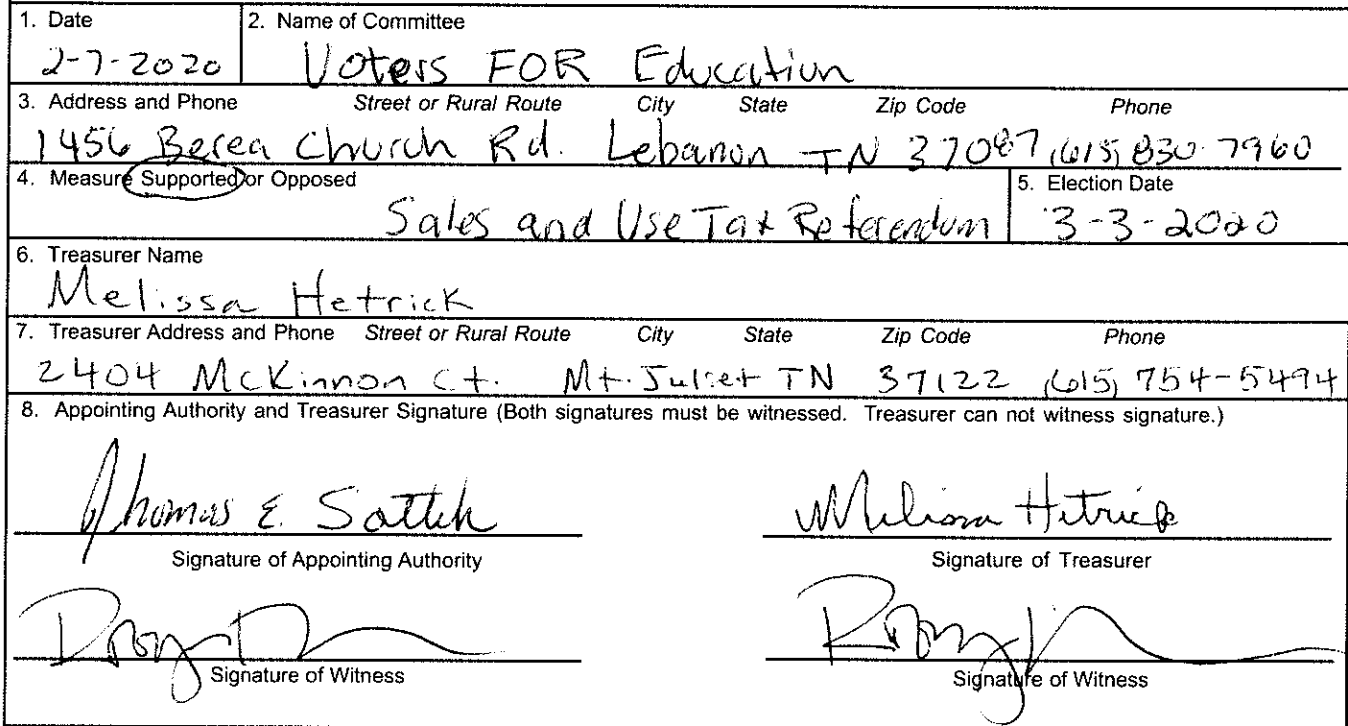 1. Date 2. Name of Committee
2-7-2020 Voters FOR Education
3. Address and Phone Street or Rural Route City State Zip Code Phone
1456 Berea Church Rd. Lebanon TN 37087 (615) 830-7960
4. Measure Supported or Opposed 5. Election Date
Sales and Use Tax Referendum 3-3-2020
6. Treasurer Name
Melissa Hetrick
7. Treasurer Address and Phone Street or Rural Route City State Zip Code Phone
2404 McKinnon Ct. Mt. Juliet TN 37122 (615) 754-5494
8. Appointing Authority and Treasurer Signature (Both signatures must be witnessed. Treasurer can not witness signature.)
Thomas E. Melissa Hetrick
Signature of Appointing Authority Signature of Treasurer
Signature of Witness Signature of Witness